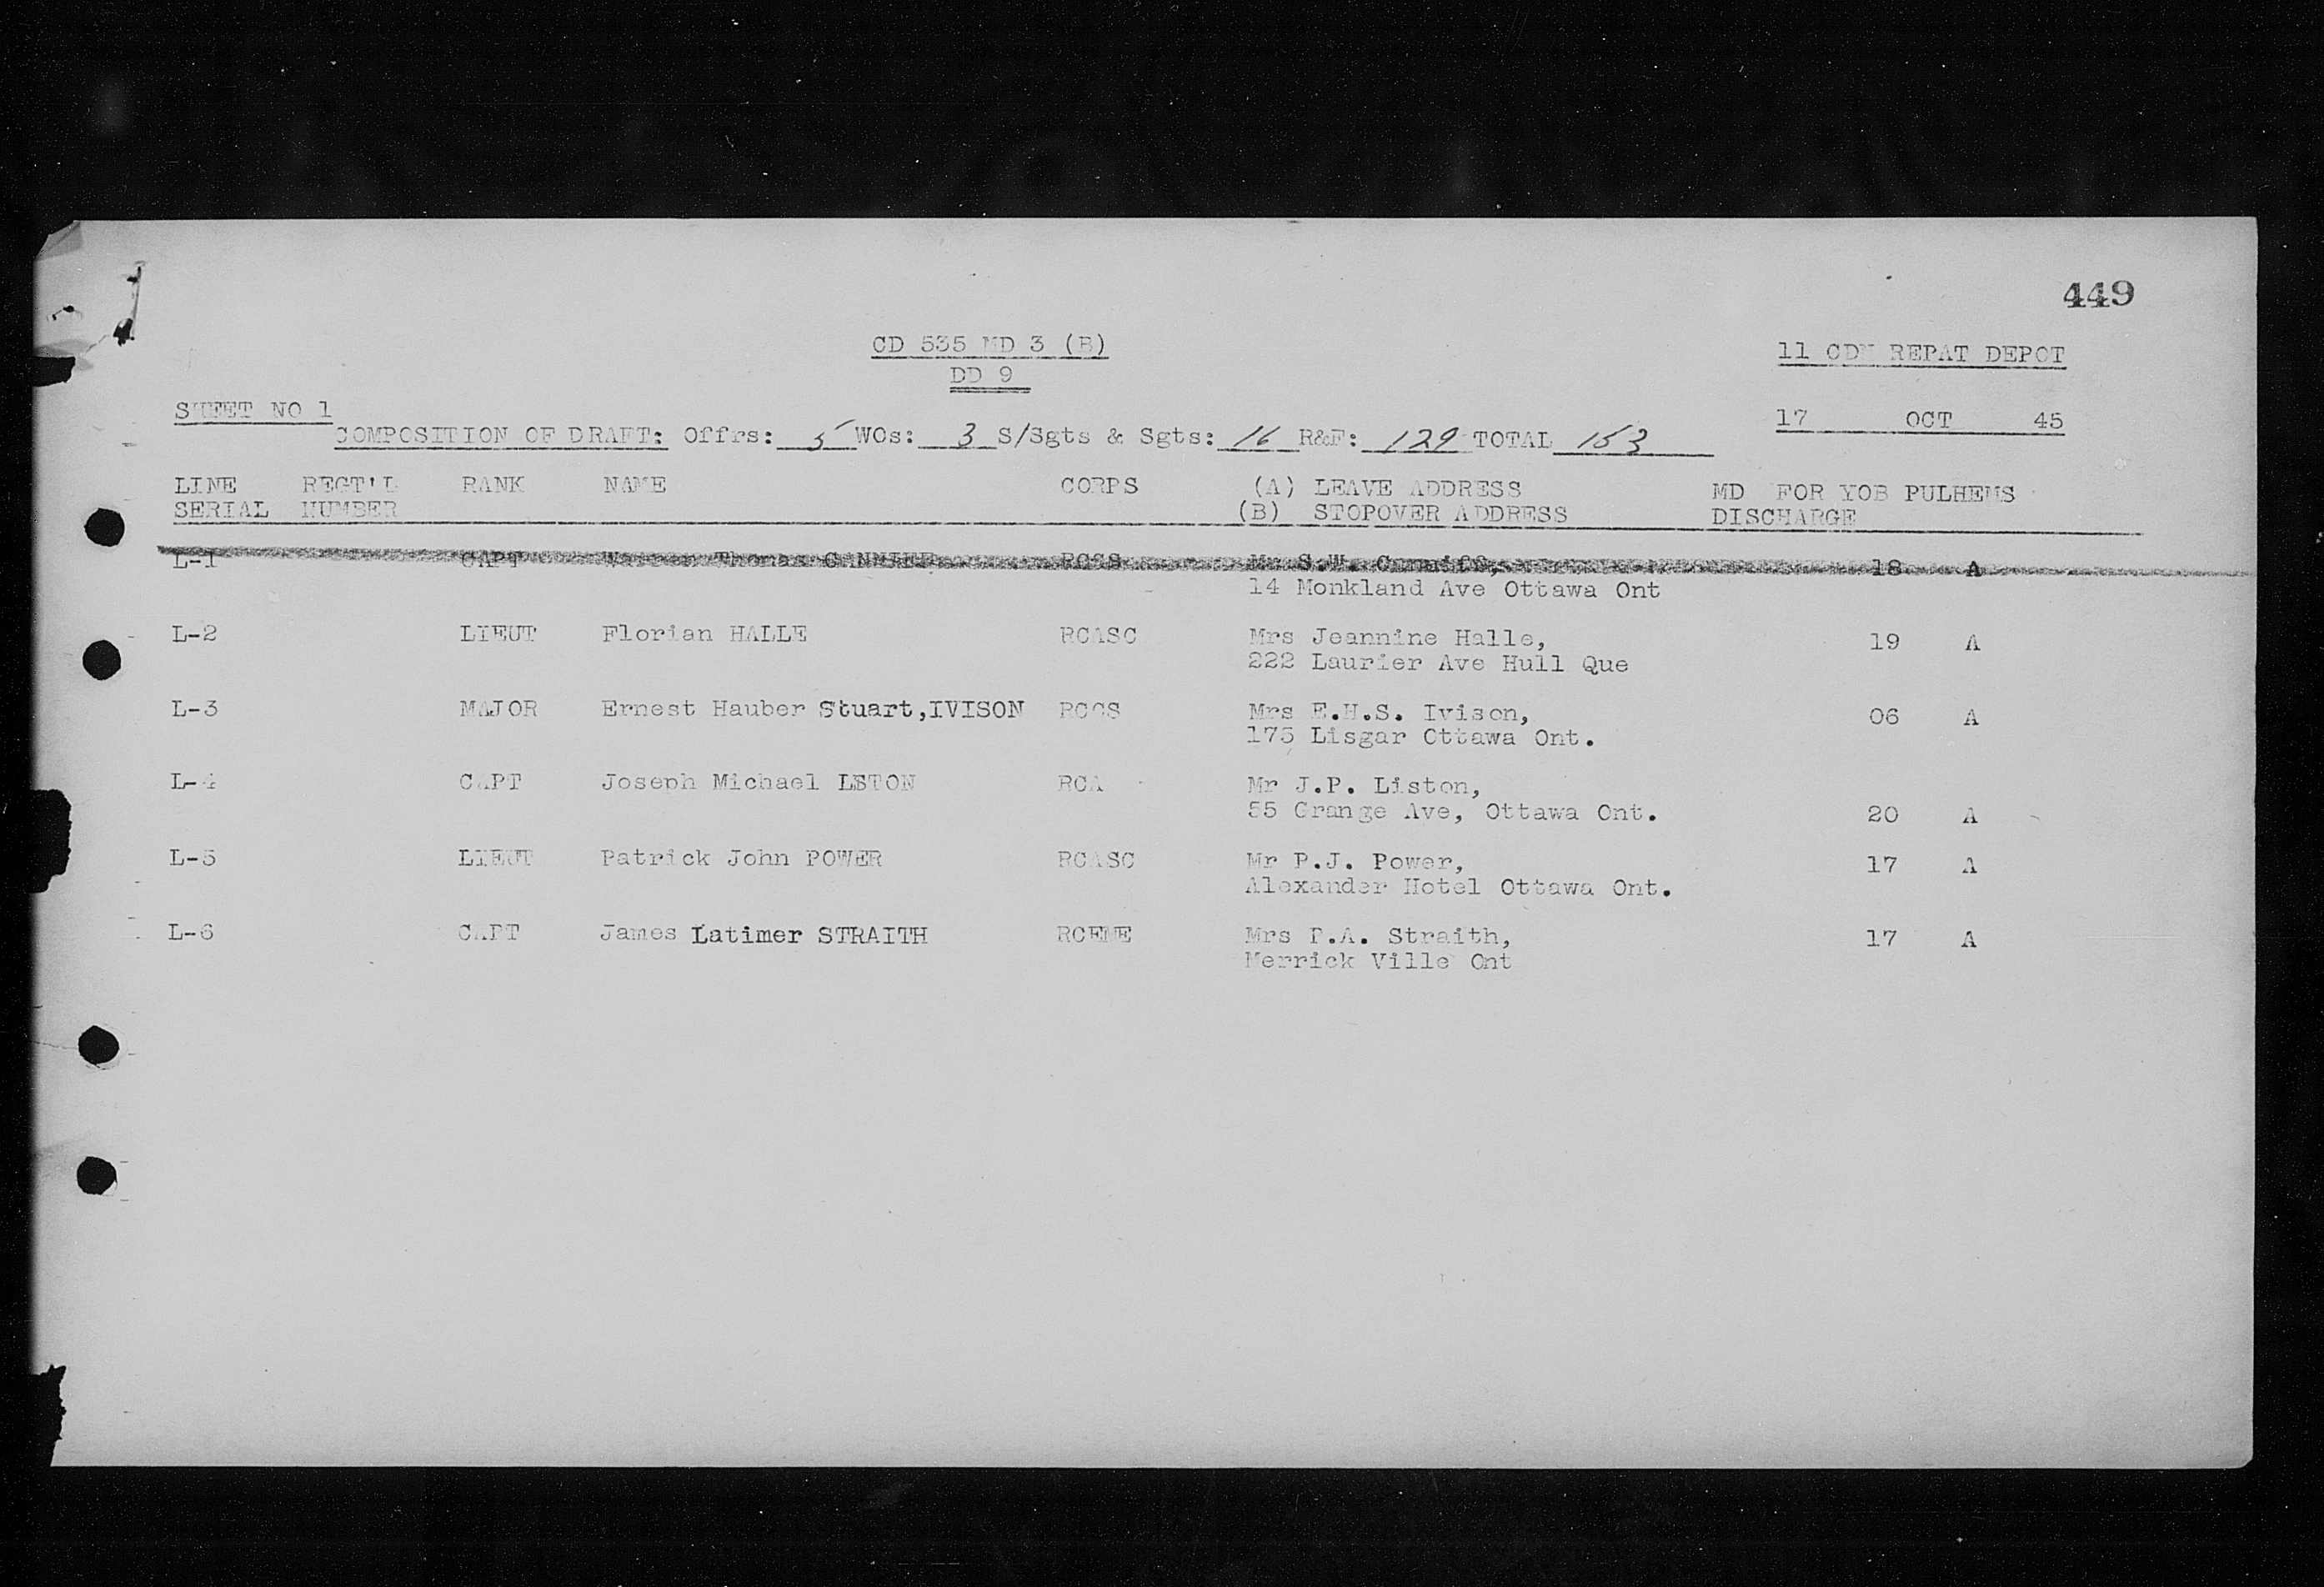 449
CD 535 MD 3 (B)
DD 9
11 CDN REPAT DEPOT
SHEET NO 1
17 OCT 45
COMPOSITION OF DRAFT: Offrs: 5 WOs: 3 S/Sgts & Sgts: 16 R&F: 129 TOTAL 153
LINE REGT'L RANK NAME CORPS (A) LEAVE ADDRESS MD FOR YOB PULHEMS
SERIAL NUMBER (B) STOPOVER ADDRESS DISCHARGE
L-1 CAPT Thomas RCCS Mr S.W. 18 A
14 Monkland Ave Ottawa Ont
L-2 LIEUT Florian HALLE RCASC Mrs Jeannine Halle, 19 A
222 Laurier Ave Hull Que
L-3 MAJOR Ernest Hauber Stuart,IVISON RCCS Mrs E.H.S. Ivison, 06 A
175 Lisgar Ottawa Ont.
L-4 CAPT Joseph Michael LSTON RCA Mr J.P. Liston,
55 Grange Ave, Ottawa Ont. 20 A
L-5 LIEUT Patrick John POWER RCASC Mr P.J. Power, 17 A
Alexander Hotel Ottawa Ont.
L-6 CAPT James Latimer STRAITH RCEME Mrs P.A. Straith, 17 A
Merrick Ville Ont